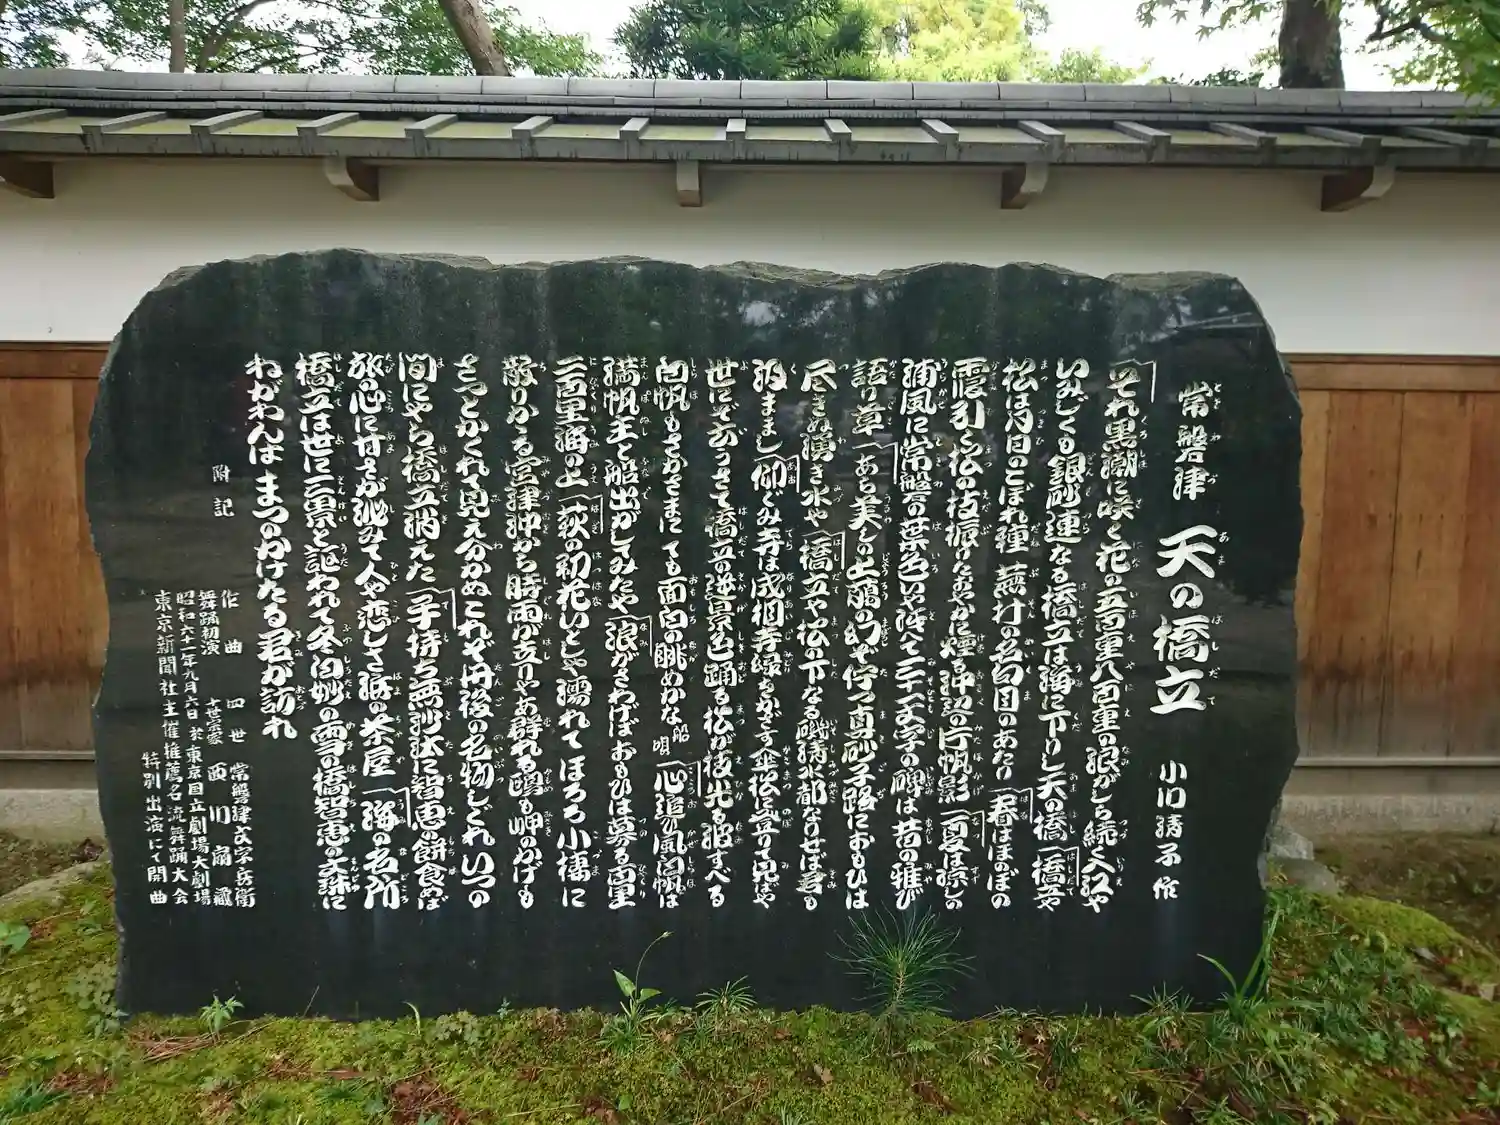 常磐津 天の橋立 小川清子作
それ黒潮に咲く花の五百重八百重の浪がしら続く入江や
いみじくも銀砂連なる橋立は海に下りし天の橋 橋立や
松は月日のこぼれ種 蕪村の名句目のあたり 春はほのぼの
霞引く松の枝振りたおやかに煙る沖辺の片帆影 夏は涼しの
浦風に常磐の葉色いや映へて三十一文字の碑は昔の雅び
語り草 あら美しの上臈の幻ぞ佇つ真砂子路におもひは
尽きぬ湧き水や 橋立や松の下なる磯清水都なりせば君も
汲ままし 仰ぐみ寺は成相寺緑をかざす傘松に登りて見ばや
世にぞ云うさて橋立の逆景色踊る松が枝光る波すべる
白帆もさかさまにても面白の眺めかな 船唄 心追ひ風白帆は
満帆主と船出がしてみたや 浪がさわげばおもひは募る百里
二百里海の上 萩の初花いとしや濡れてほろろ小褄に
散りかゝる宮津沖から時雨が走りやあ群れる鴎も岬のかげも
さっとかくれて見え分かぬこれぞ丹後の名物しぐれいつの
間にやら橋立晴えた 手持ち無沙汰に智恵の餅食めば
旅の心に甘さが沁みて人や恋しさ浜の茶屋 海の名所
橋立は世に三景と謳われて冬白妙の雪の橋智恵の文殊に
わがわんは まつのかけたる君が訪れ
附記
作曲 四世 常磐津文字兵衛
舞踊初演 十世宗家 西川扇藏
昭和六十一年九月六日 於東京国立劇場大劇場
東京新聞社主催推薦名流舞踊大会
特別出演にて開曲